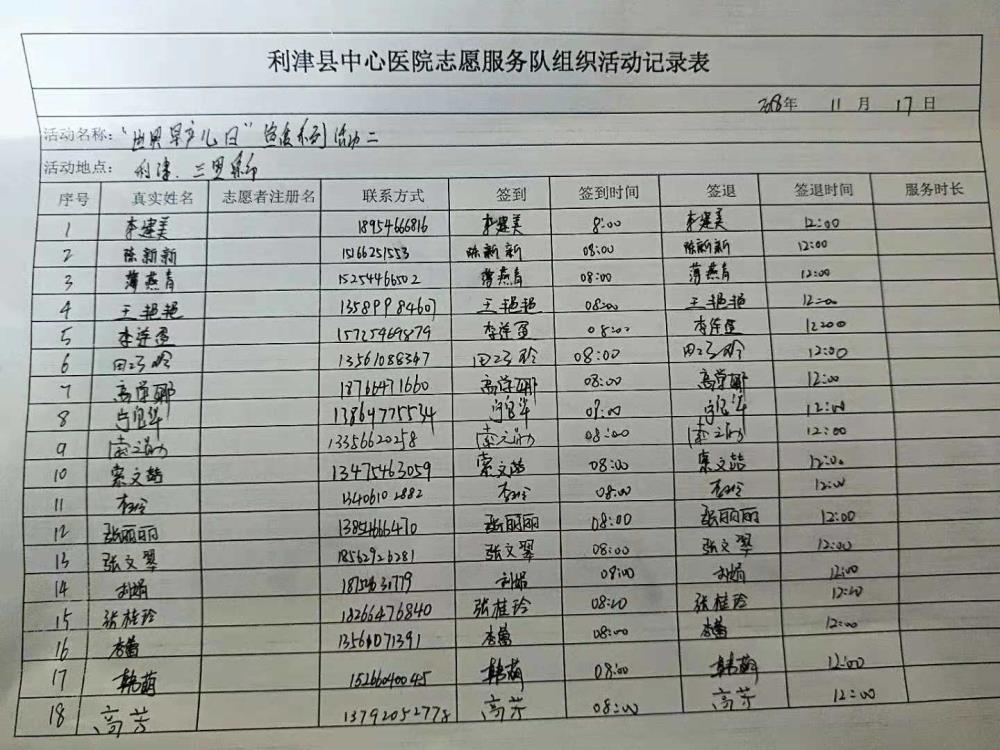 利津县中心医院志愿服务队组织活动记录表
2018年 11月 17日
活动名称："世界早产儿日"系列活动二
活动地点：利津
序号 真实姓名 志愿者注册名 联系方式 签到 签到时间 签退 签退时间 服务时长
1 李建美 18954666816 李建美 8:00 李建美 12:00
2 陈新新 15166251553 陈新新 08:00 陈新新 12:00
3 薄燕青 15254466502 薄燕青 08:00 薄燕青 12:00
4 王艳艳 13589984607 王艳艳 08:00 王艳艳 12:00
5 李 15725969879 李 08:00 李 12:00
6 田 13561088347 田 08:00 田 12:00
7 高学娜 18766471660 高学娜 08:00 高学娜 12:00
8 13864775534 12:00
9 13356620258 08:00 12:00
10 索文喆 13475463059 索文喆 08:00 索文喆 12:00
11 李玲 13406102882 李玲 08:00 李玲 12:00
12 张丽丽 13854666470 张丽丽 08:00 张丽丽 12:00
13 张文翠 18562926281 张文翠 08:00 张文翠 12:00
14 刘娟 刘娟 08:00 刘娟 12:00
15 张桂玲 18266476840 张桂玲 08:00 张桂玲 12:00
16 李蕾 13561071391 李蕾 08:00 李蕾 12:00
17 韩萌 15266040045 韩萌 08:00 韩萌 12:00
18 高芳 13792052778 高芳 08:00 高芳 12:00